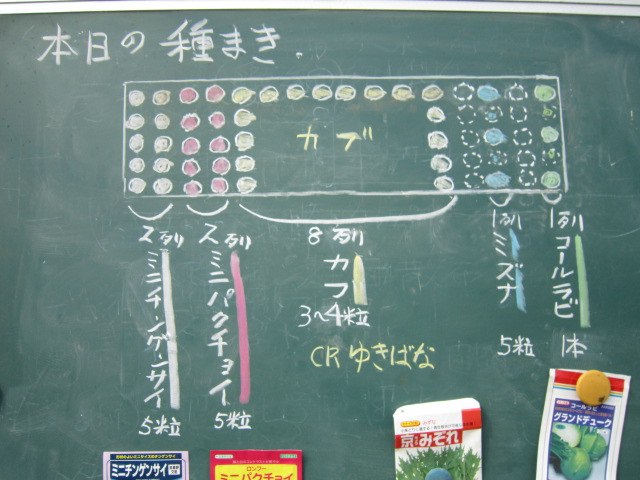 本日の種まき.
カブ
2列
ミニチンゲンサイ
5粒
2列
ミニパクチョイ
5粒
8列
カブ
3〜4粒
CRゆきばな
1列
ミズナ
5粒
1列
コールラビ
1本
ミニチンゲンサイ
ロンフー
ミニパクチョイ
京みぞれ
コールラビ
グランドデューク